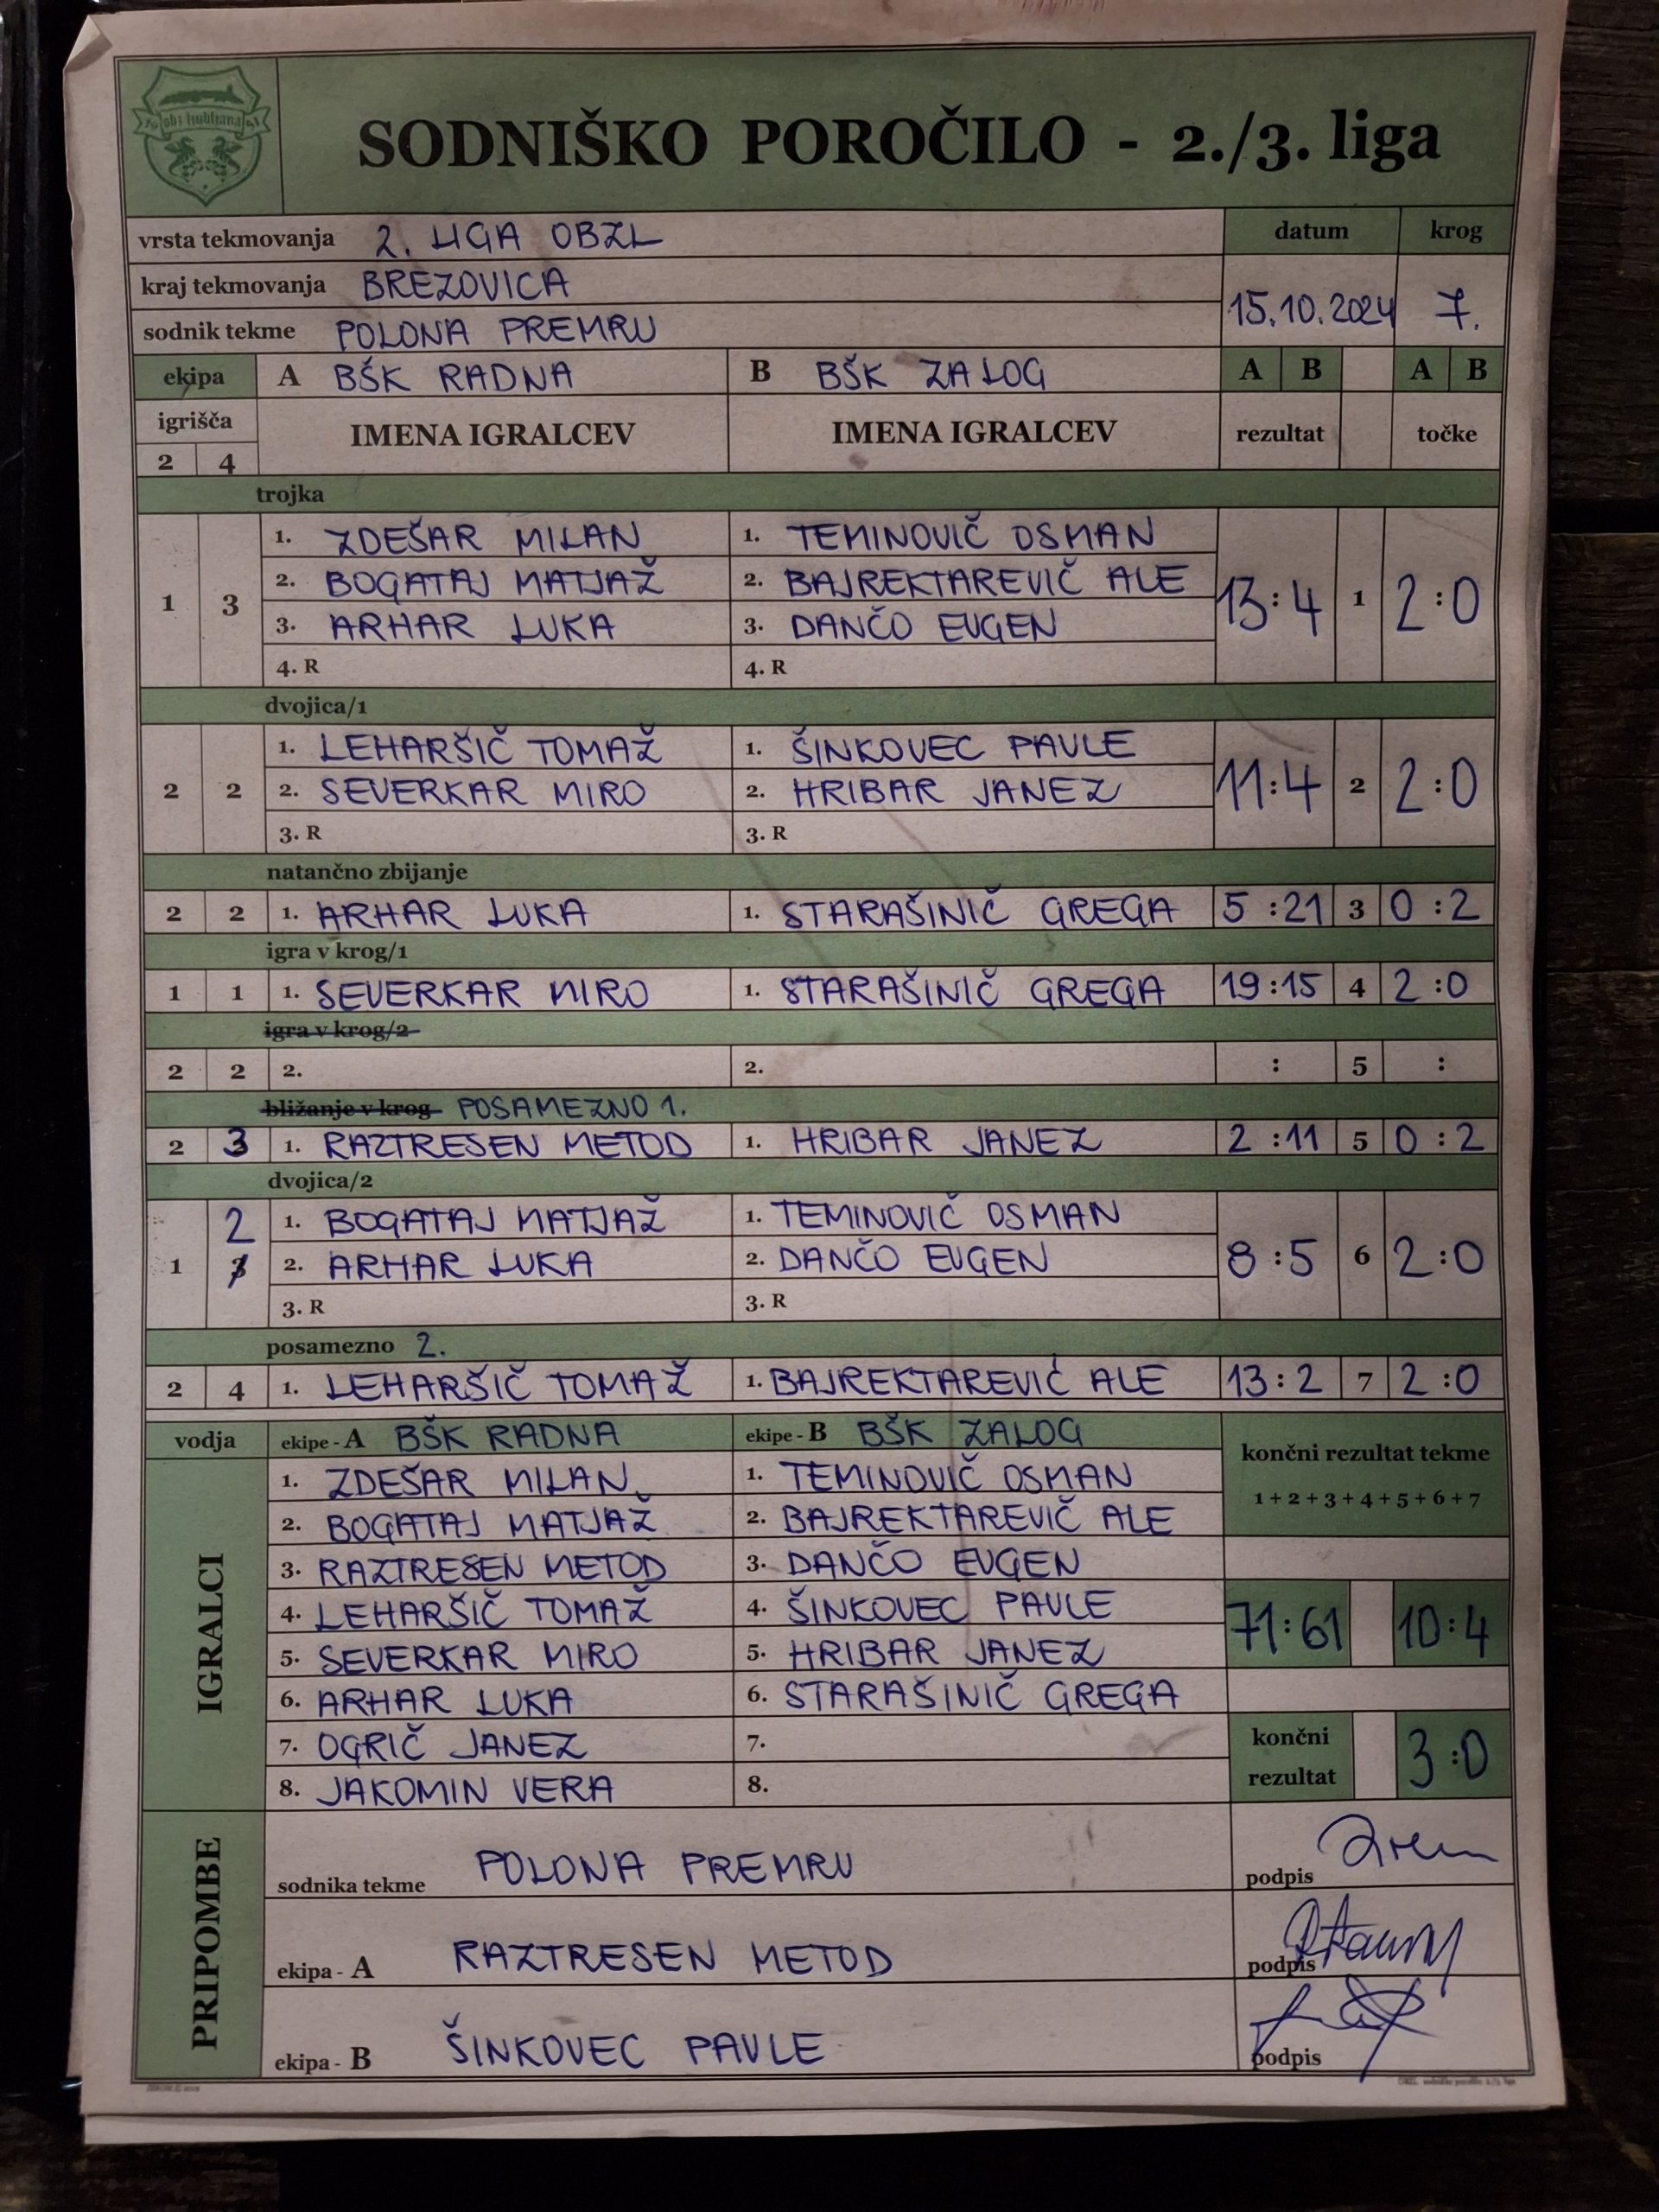 obz ljubljana
SODNIŠKO POROČILO - 2./3. liga
vrsta tekmovanja 2. LIGA OBZL datum krog
kraj tekmovanja BREZOVICA
15.10.2024 7.
sodnik tekme POLONA PREMRU
ekipa A BŠK RADNA B BŠK ZALOG A B A B
igrišča IMENA IGRALCEV IMENA IGRALCEV rezultat točke
2 4
trojka
1. ZDEŠAR MILAN 1. TEMINOVIČ OSMAN
2. BOGATAJ MATJAŽ 2. BAJREKTAREVIČ ALE
1 3 13:4 1 2:0
3. ARHAR LUKA 3. DANČO EUGEN
4. R 4. R
dvojica/1
1. LEHARŠIČ TOMAŽ 1. ŠINKOVEC PAVLE
2 2 2. SEVERKAR MIRO 2. HRIBAR JANEZ 11:4 2 2:0
3. R 3. R
natančno zbijanje
2 2 1. ARHAR LUKA 1. STARAŠINIČ GREGA 5:21 3 0:2
igra v krog/1
1 1 1. SEVERKAR MIRO 1. STARAŠINIČ GREGA 19:15 4 2:0
igra v krog/2
2 2 2. 2. : 5 :
bližanje v krog POSAMEZNO 1.
2 3 1. RAZTRESEN METOD 1. HRIBAR JANEZ 2:11 5 0:2
dvojica/2
2 1. BOGATAJ MATJAŽ 1. TEMINOVIČ OSMAN
1 3 2. ARHAR LUKA 2. DANČO EUGEN 8:5 6 2:0
3. R 3. R
posamezno 2.
2 4 1. LEHARŠIČ TOMAŽ 1. BAJREKTAREVIĆ ALE 13:2 7 2:0
vodja ekipe - A BŠK RADNA ekipe - B BŠK ZALOG končni rezultat tekme
1+2+3+4+5+6+7
IGRALCI
1. ZDEŠAR MILAN 1. TEMINOVIČ OSMAN
2. BOGATAJ MATJAŽ 2. BAJREKTAREVIČ ALE
3. RAZTRESEN METOD 3. DANČO EUGEN
4. LEHARŠIČ TOMAŽ 4. ŠINKOVEC PAVLE
71:61 10:4
5. SEVERKAR MIRO 5. HRIBAR JANEZ
6. ARHAR LUKA 6. STARAŠINIČ GREGA
7. OGRIČ JANEZ 7.
končni rezultat 3:0
8. JAKOMIN VERA 8.
PRIPOMBE
sodnika tekme POLONA PREMRU podpis
ekipa - A RAZTRESEN METOD podpis
ekipa - B ŠINKOVEC PAVLE podpis